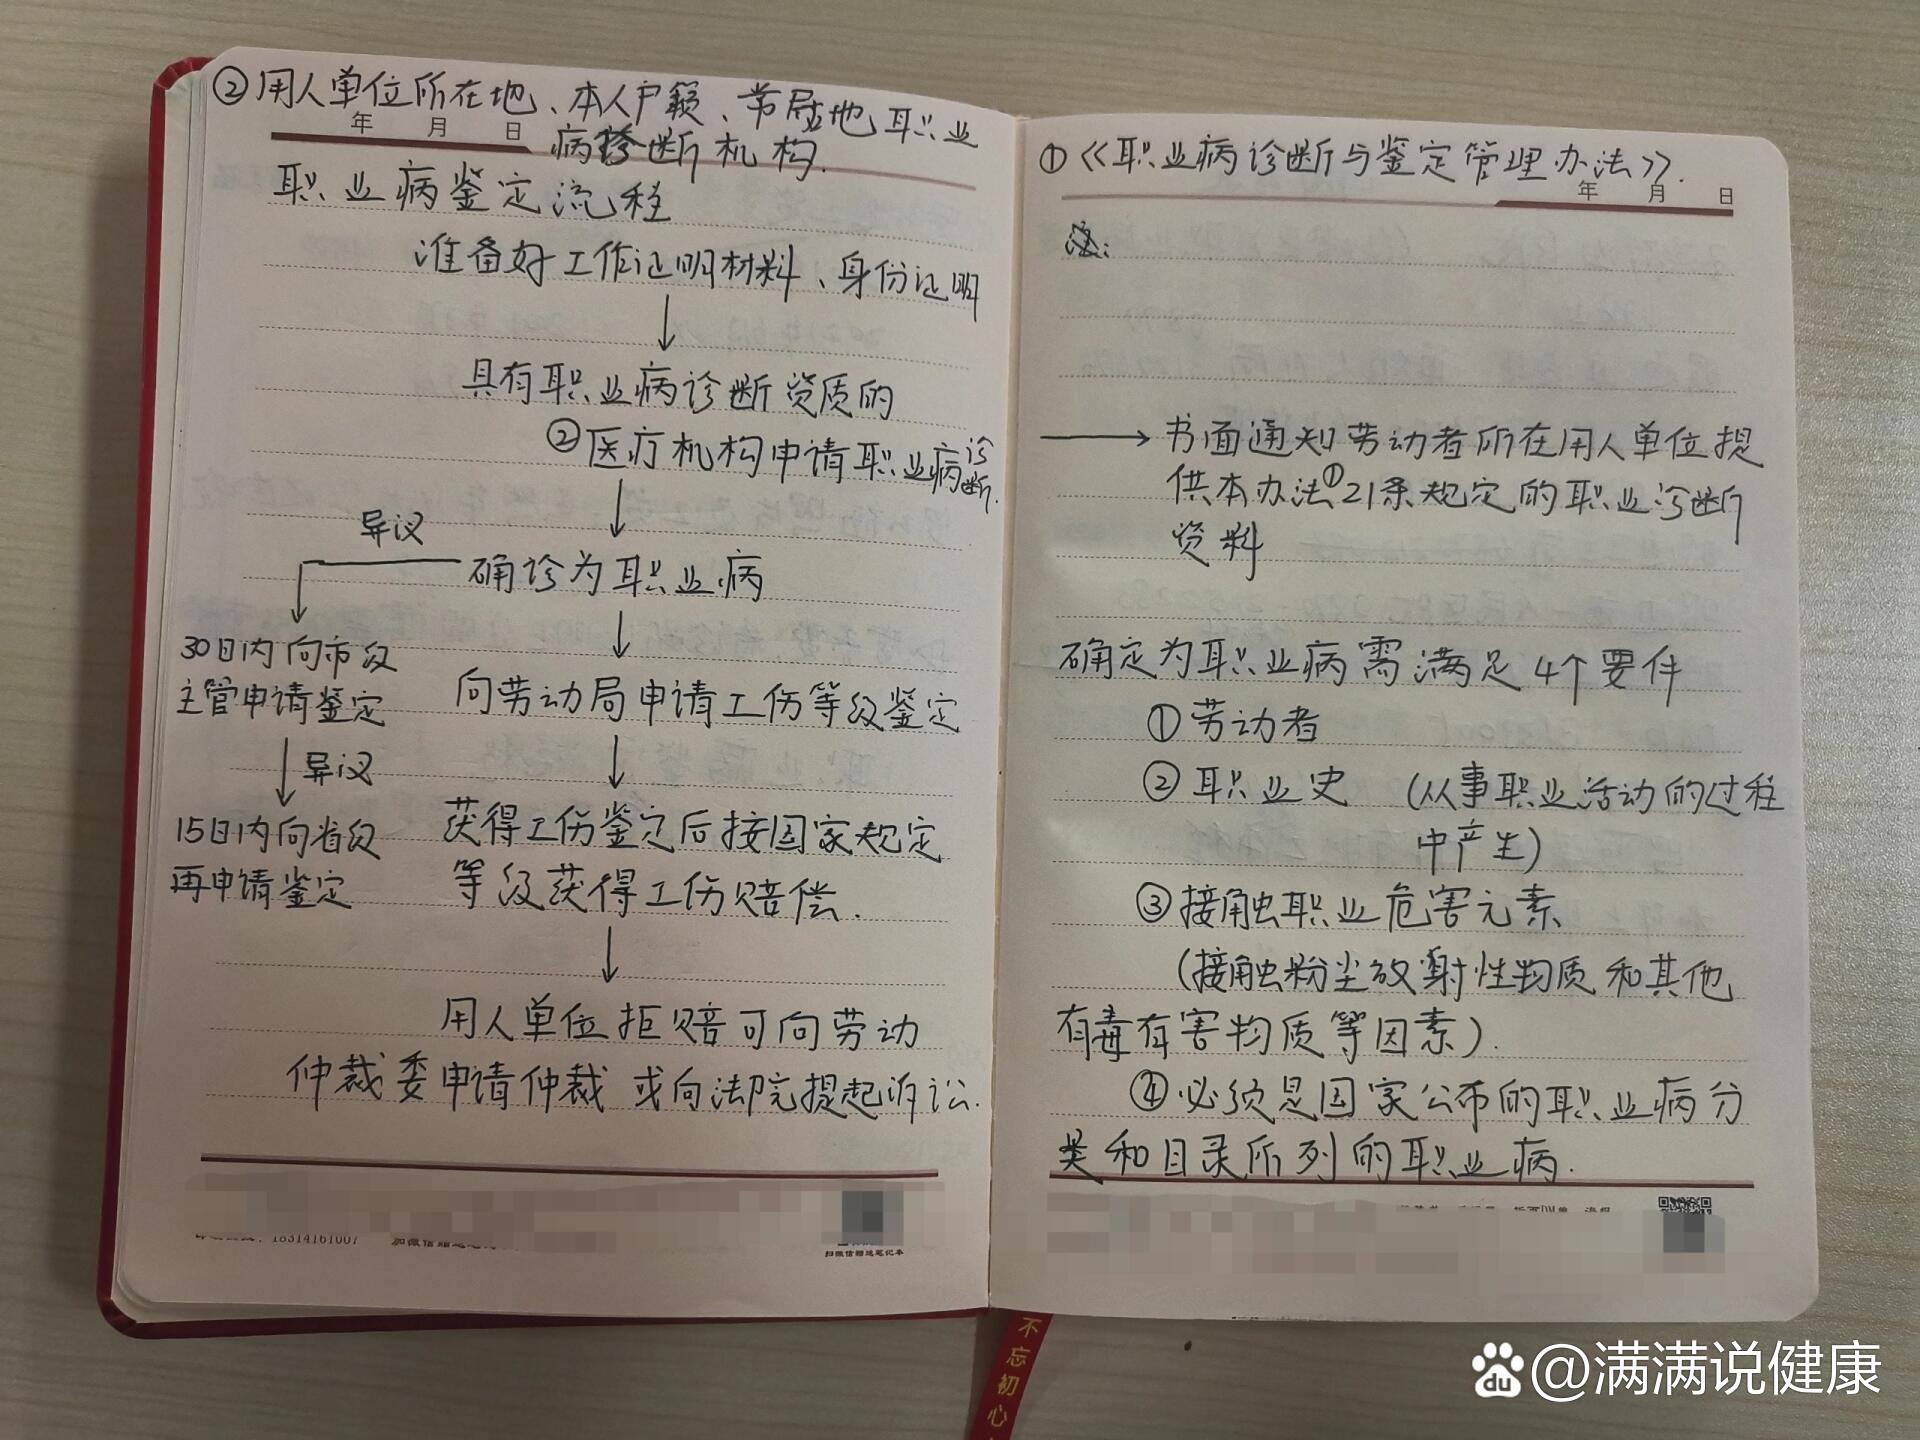 ②用人单位所在地、本人户籍、常居地职业
年 月 日
病诊断机构.
职业病鉴定流程
准备好工作证明材料、身份证明
具有职业病诊断资质的
②医疗机构申请职业病诊断.
异议
确诊为职业病
30日内向市级
主管申请鉴定
向劳动局申请工伤等级鉴定
异议
15日内向省级
再申请鉴定
获得工伤鉴定后按国家规定
等级获得工伤赔偿.
用人单位拒赔可向劳动
仲裁委申请仲裁 或向法院提起诉讼.
18314161007
扫微信赠送笔记本
①《职业病诊断与鉴定管理办法》.
年 月 日
注:
书面通知劳动者所在用人单位提
供本办法①21条规定的职业诊断
资料
确定为职业病需满足4个要件
①劳动者
②职业史 (从事职业活动的过程
中产生)
③接触职业危害元素
(接触粉尘放射性物质和其他
有毒有害物质等因素).
④必须是国家公布的职业病分
类和目录所列的职业病.
不忘初心
du @满满说健康